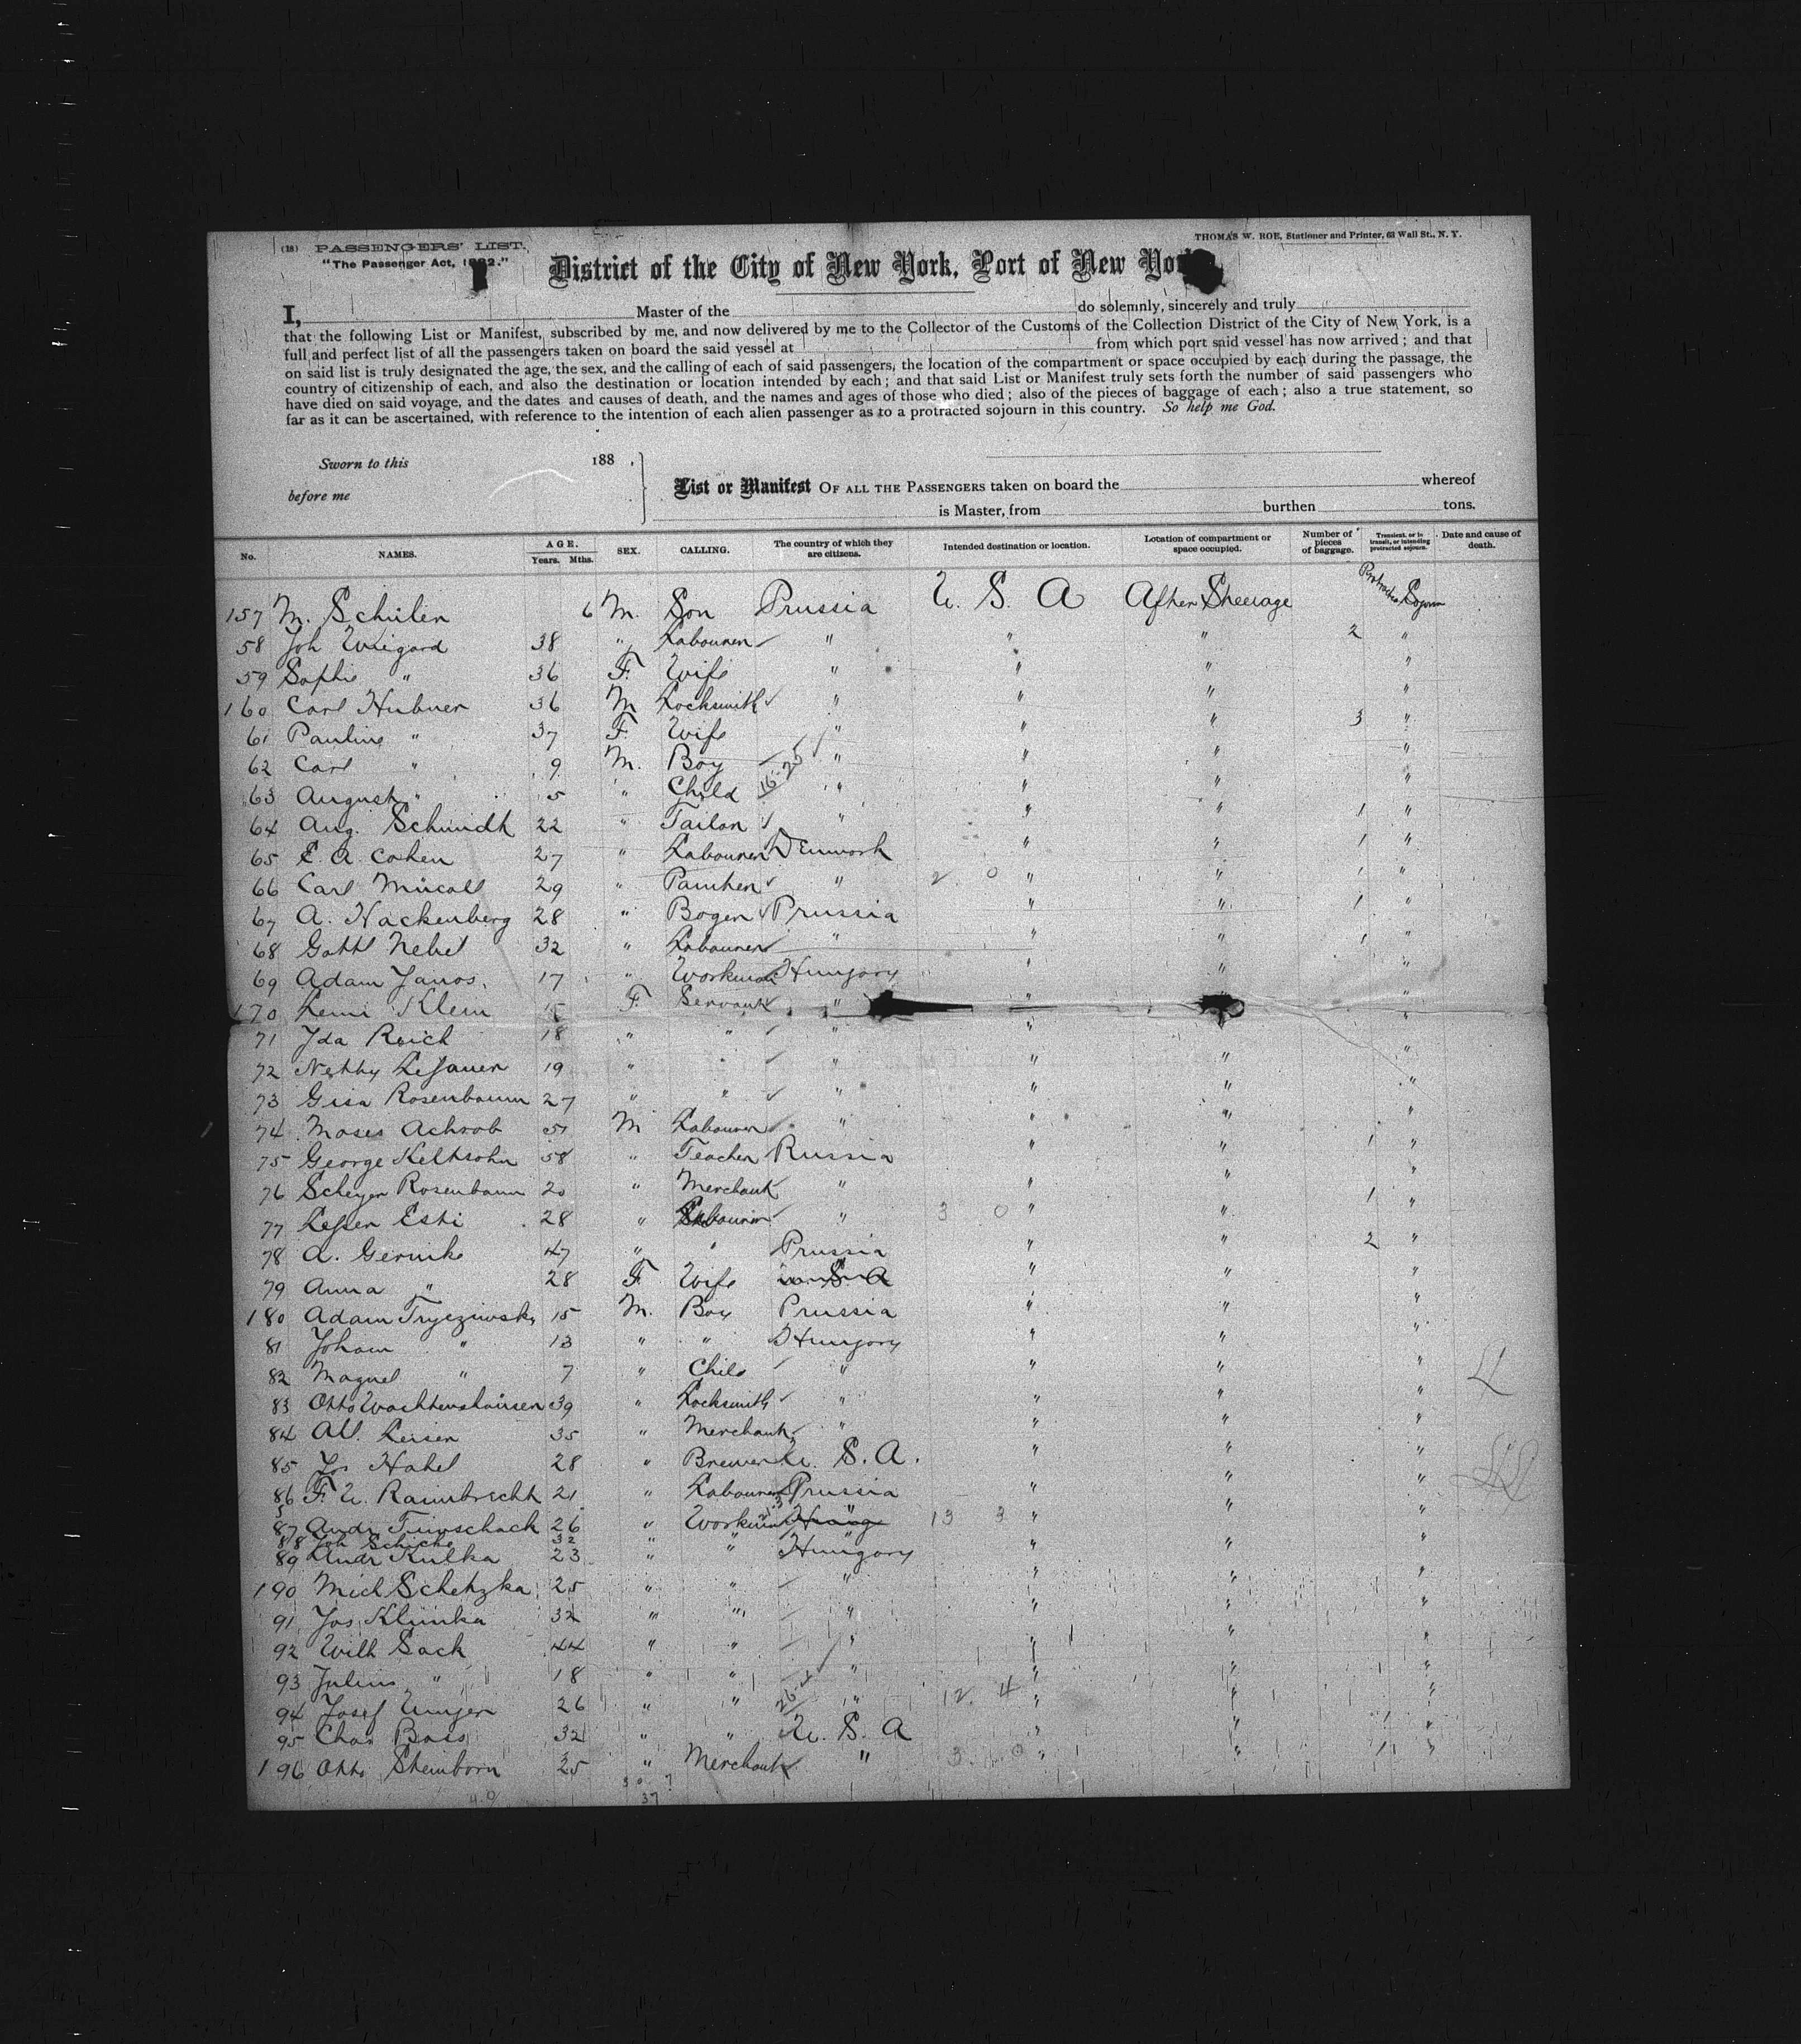 (18) PASSENGERS' LIST.
THOMAS W. ROE, Stationer and Printer, 63 Wall St., N. Y.
"The Passenger Act, 1882."
District of the City of New York, Port of New York
I, Master of the do solemnly, sincerely and truly
that the following List or Manifest, subscribed by me, and now delivered by me to the Collector of the Customs of the Collection District of the City of New York, is a
full and perfect list of all the passengers taken on board the said vessel at from which port said vessel has now arrived; and that
on said list is truly designated the age, the sex, and the calling of each of said passengers, the location of the compartment or space occupied by each during the passage, the
country of citizenship of each, and also the destination or location intended by each; and that said List or Manifest truly sets forth the number of said passengers who
have died on said voyage, and the dates and causes of death, and the names and ages of those who died; also of the pieces of baggage of each; also a true statement, so
far as it can be ascertained, with reference to the intention of each alien passenger as to a protracted sojourn in this country. So help me God.
Sworn to this 188 ,
before me
List or Manifest OF ALL THE PASSENGERS taken on board the whereof
is Master, from burthen tons.
No. NAMES. AGE. Years. Mths. SEX. CALLING. The country of which they are citizens. Intended destination or location. Location of compartment or space occupied. Number of pieces of baggage. Transient, or in transit, or intending protracted sojourn. Date and cause of death.
157 M. Schulen 6 M. Son Prussia U. S. A After Steerage Protracted Sojourn
58 Joh Wiegard 38 " Labourer " " " 2 "
59 Sophie " 36 F. Wife " " " "
160 Carl Hubner 36 M Locksmith " " " "
61 Pauline " 37 F. Wife " " " 3 "
62 Carl " 9 M. Boy " " " "
63 August " 5 " Child 16-25 " " " "
64 Aug. Schmidt 22 " Tailor " " " 1 "
65 E. A. Cohen 27 " Labourer Denmark " " 1 "
66 Carl 29 " " 2 0 " " 1 "
67 A. Hackenberg 28 " Prussia " " 1 "
68 Gottl Nebel 32 " Labourer " " " 1 "
69 Adam Janos 17 " Workman Hungary " " "
170 Klein 15 F Servant " " "
71 Ida Reich 18 " " " " "
72 Netthy 19 " " " " " "
73 Gisa Rosenbaum 27 " " " " " "
74 Moses Achrob 51 M Labourer " " " "
75 George Keltsohn 58 " Teacher Russia " " 1 "
76 Scheyer Rosenbaum 20 " Merchant " " " "
77 Lesser Esti 28 " Labourer " 3 0 " " 1 "
78 A. Gernike 47 " " Prussia " " 2 "
79 Anna " 28 F Wife U. S. A " " "
180 Adam 15 M. Boy Prussia " " "
81 Johann " 13 " " Hungary " " "
82 Magnel " 7 " Child " " " "
83 Otto Wachtenshausen 39 " Locksmith " " " "
84 Leiser 35 " Merchant " " " "
85 Jos Habel 28 " Brewer U. S. A. " " "
86 F. W. Raimbrecht 21 " Labourer Prussia " " "
87 Andr 26 " Workman " 13 3 " " "
88 Joh Schicke 32 " " "
89 Andr Kulka 23 " Hungary " " "
190 Mich Schetzka 25 " " " " " "
91 Jos Klimka 32 " " " " " "
92 Wilh Sack 44 " " " " " "
93 Julius " 18 " " " " " "
94 Josef Unger 26 " " " 12 4 " " "
95 Chas Bass 32 " " U. S. A " " 1 "
196 Otto Steinborn 25 " Merchant " 3 0 " " 1 "
37